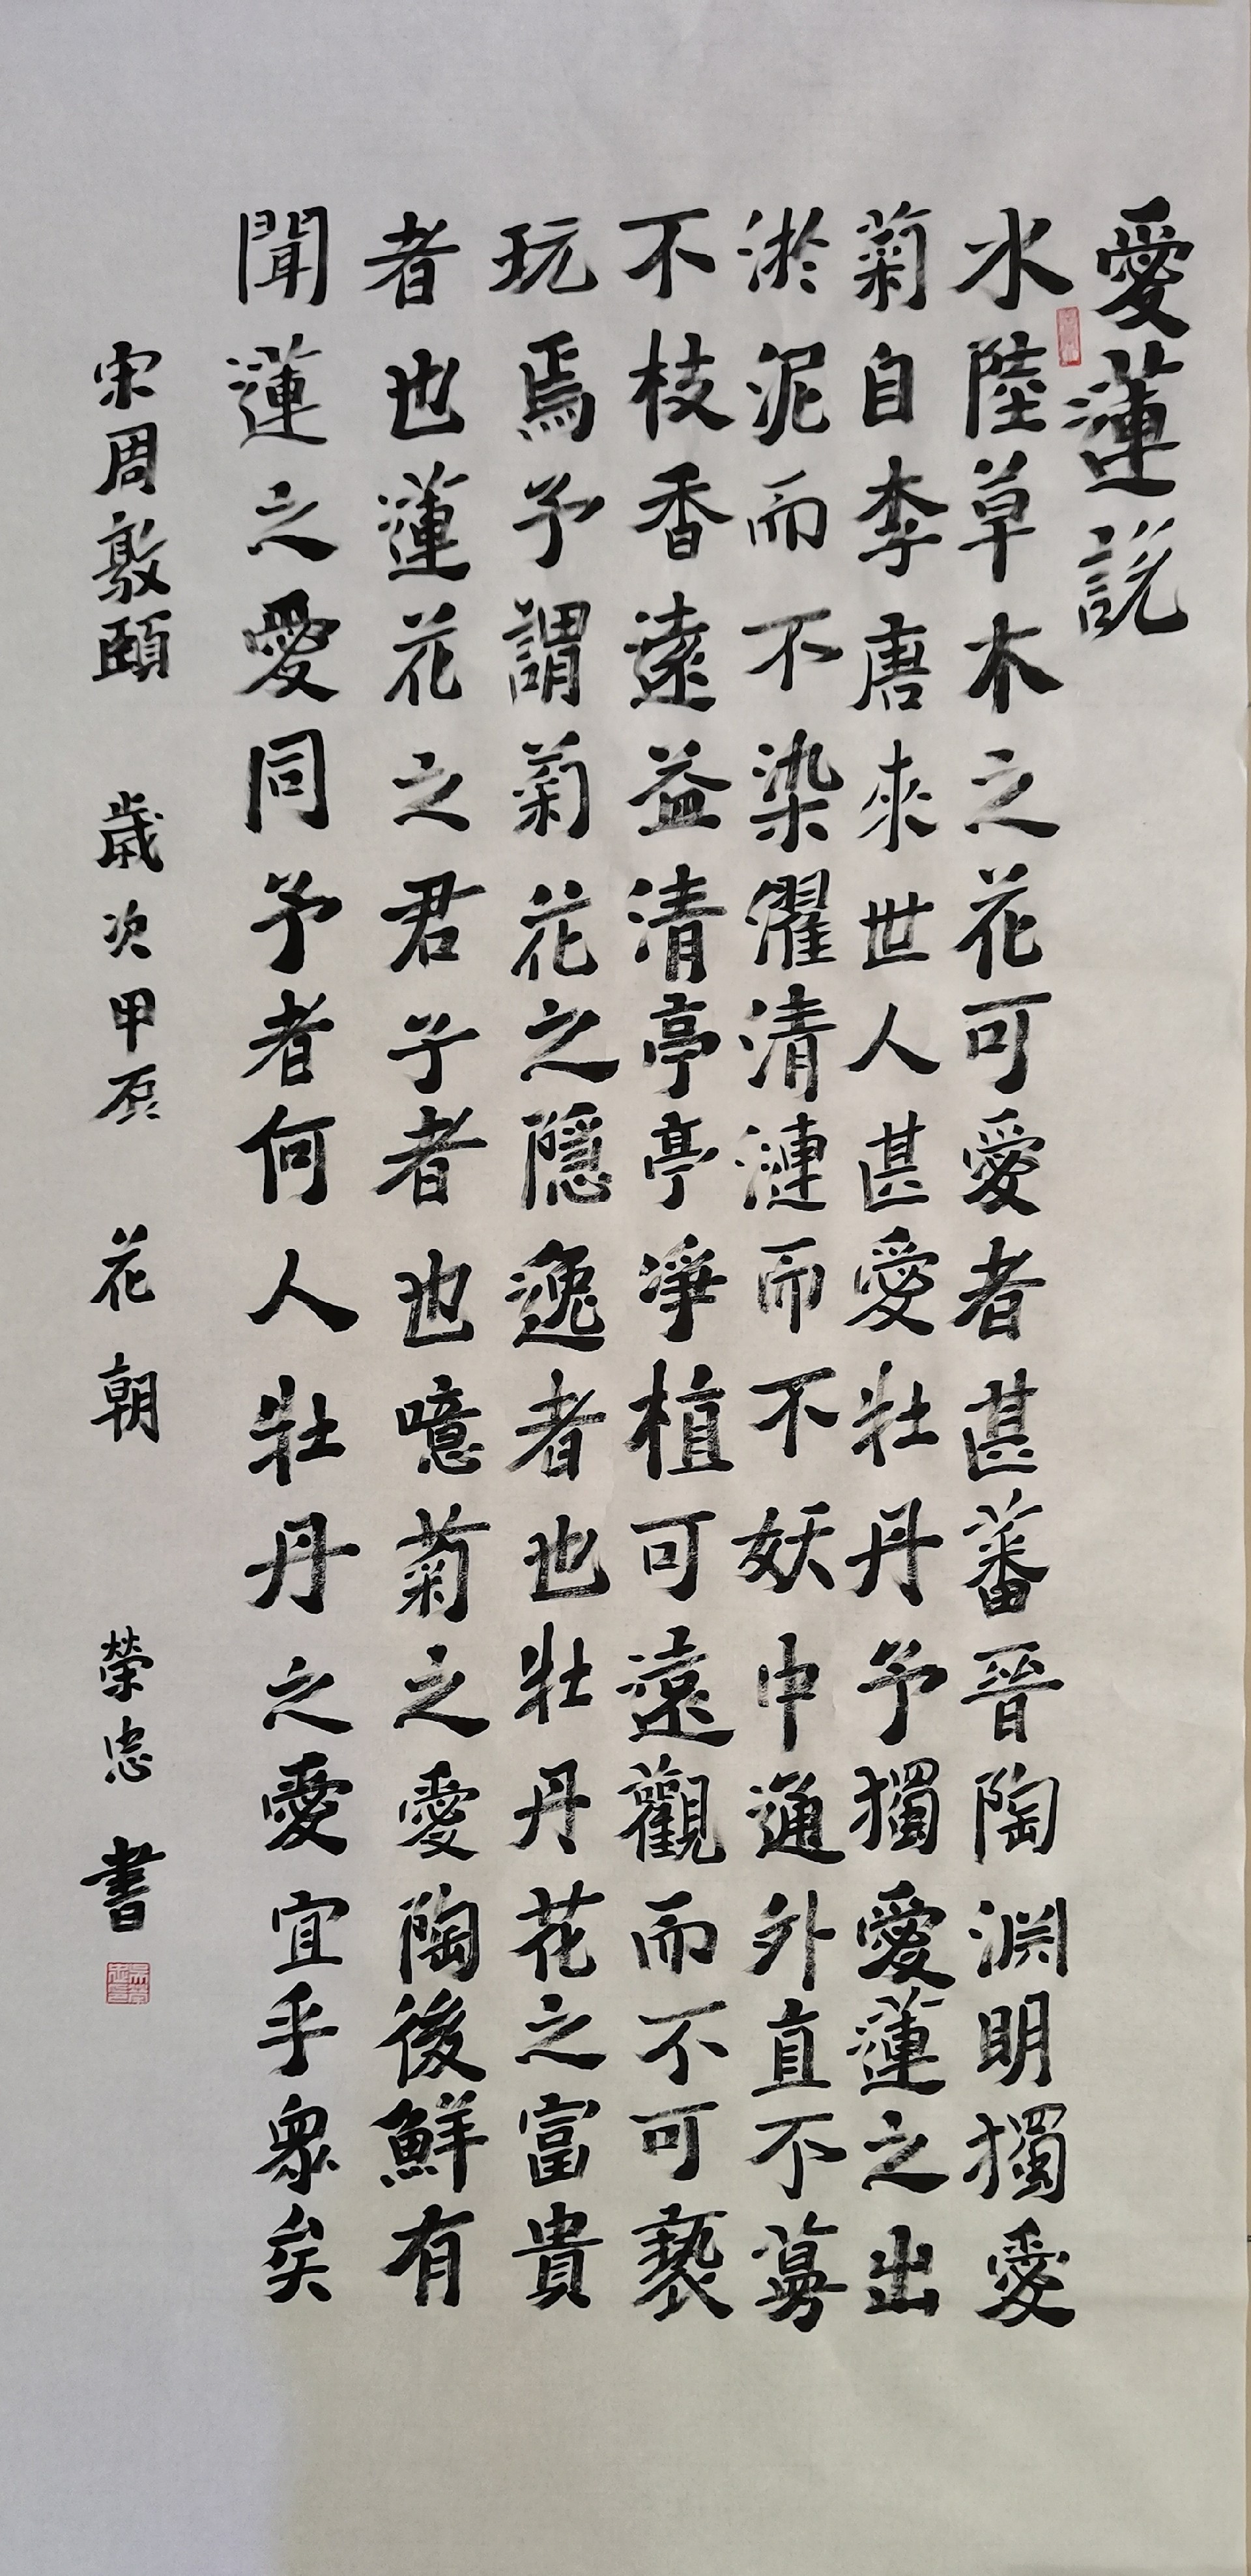 愛蓮説
水陸草木之花可愛者甚蕃晉陶渊明獨愛
菊自李唐來世人甚愛牡丹予獨愛蓮之出
淤泥而不染濯清漣而不妖中通外直不蔓
不枝香遠益清亭亭淨植可遠觀而不可褻
玩焉予謂菊花之隱逸者也牡丹花之富貴
者也蓮花之君子者也噫菊之愛陶後鮮有
聞蓮之愛同予者何人牡丹之愛宜乎衆矣
宋周敦頤 歲次甲辰 花朝 榮忠 書